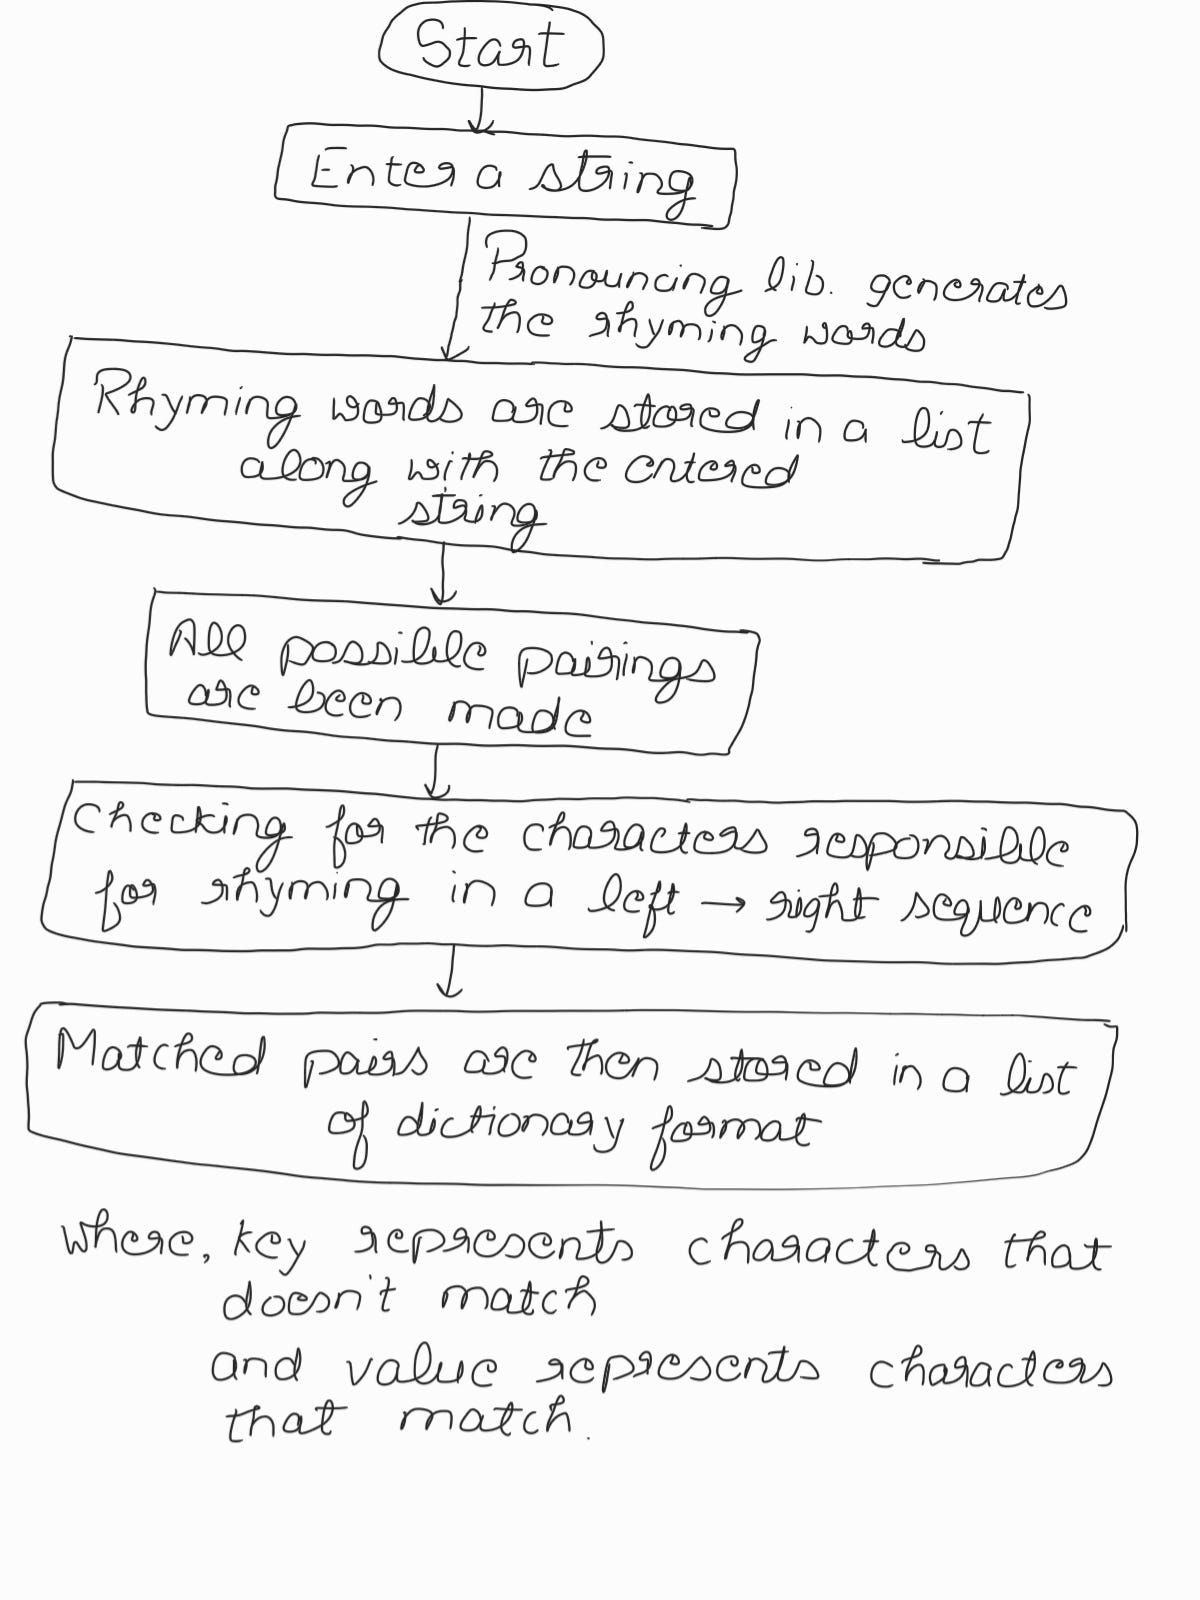 Start
Enter a string
Pronouncing lib. generates
the rhyming words
Rhyming words are stored in a list
along with the entered
string
All possible pairings
are been made
Checking for the characters responsible
for rhyming in a left → right sequence
Matched pairs are then stored in a list
of dictionary format
where, key represents characters that
doesn't match
and value represents characters
that match.